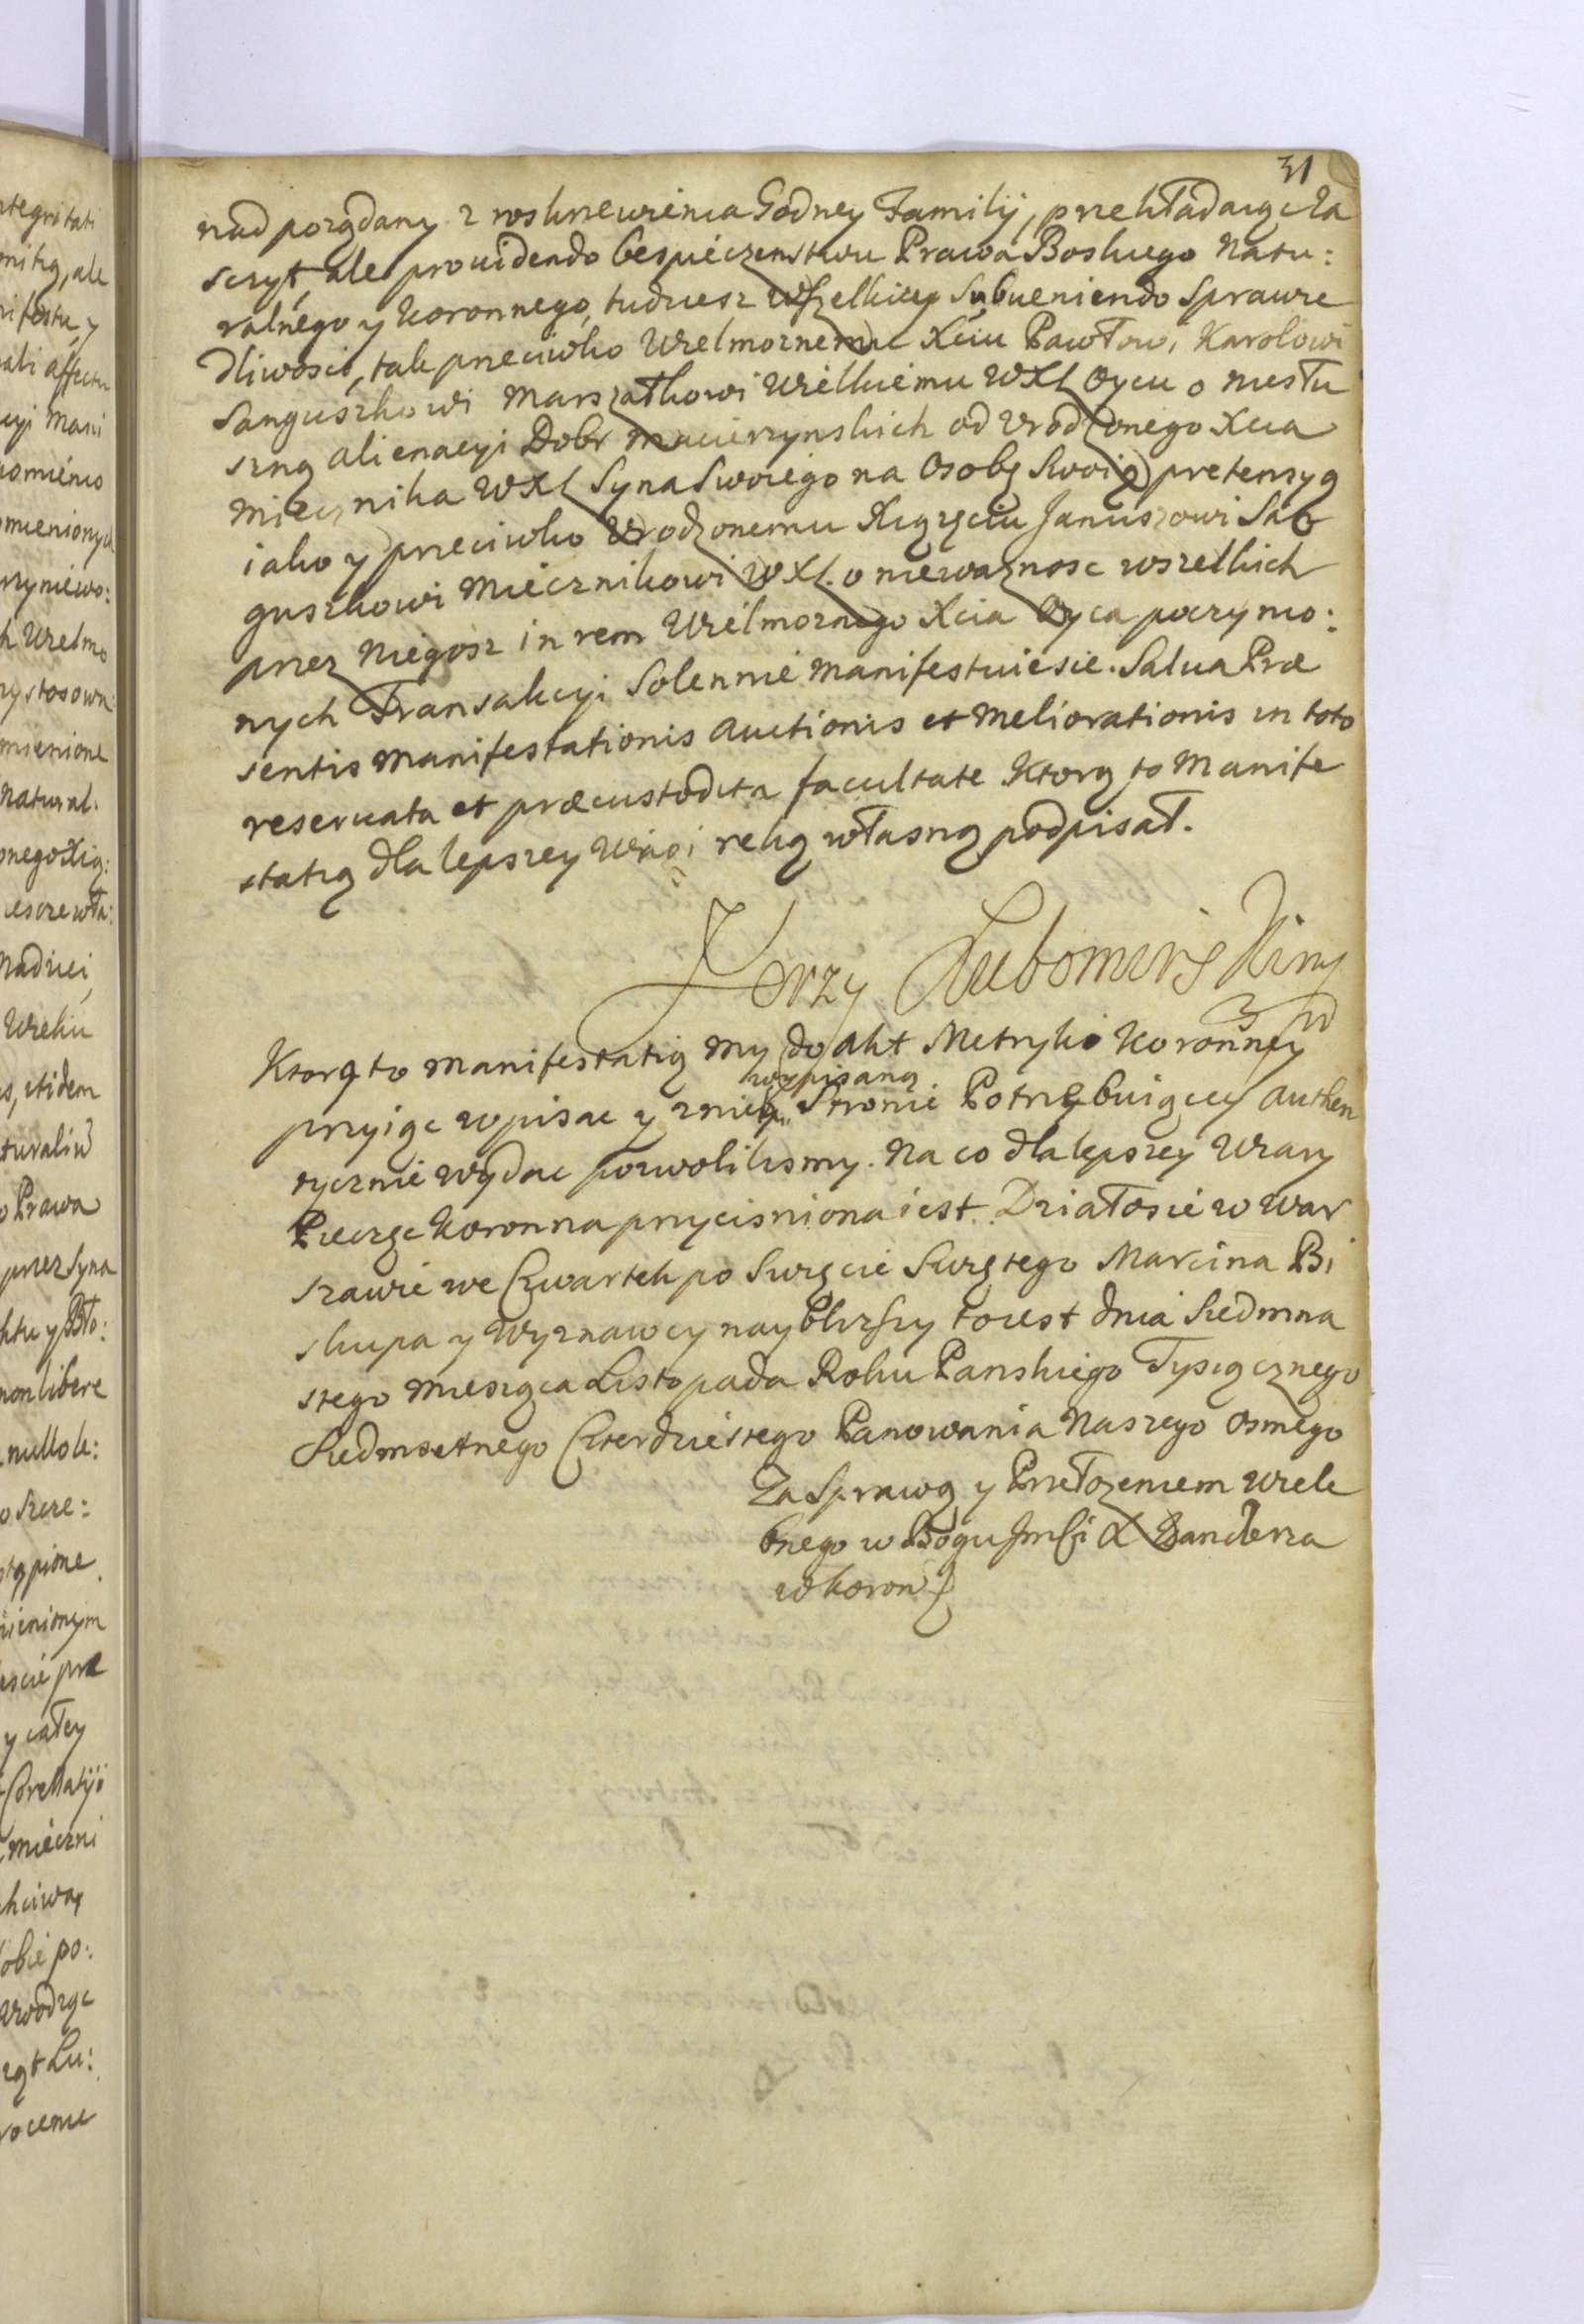 31
nad porządany z roskrzewienia Godney Familij, przekładaiąc Za
sczyt, ale prouidendo bespieczenstwu Prawa Boskiego Natu:
ralnego y Koronnego, tudziesz wszelkiey Subueniendo Sprawie
dliwosci, tak przeciwko Wielmoznemu Xciu Pawłowi Karolowi
Sanguszkowi Marszałkowi Wielkiemu WXL Oycu o niesłu
szną alienacyi Dobr Macierzynskich od Vrodzonego Xcia
Miecznika WXL Syna Swoiego na Osobę Swoię pretensyą
iako y przeciwko Vrodzonemu Xiązęciu Januszowi San
guszkowi Miecznikowi WXL. o niewaznosc wszelkich
przez Niegosz in rem Wielmoznego Xcia Oyca poczynio:
nych Transakcyi Solennie manifestuiesie. Salua Præ
sentis Manifestationis Auctionis et Meliorationis in toto
reseruata et præcustodita facultate Ktorą to Manife
statią dla lepszey Wagi ręką własną podpisał.
Jerzy Lubomirski
Ktorą to manifestatią My do Akt Metryki Koronney
wypisaną
przyiąc wpisac y zniey Stronie Potrzebuiącey Authen
tycznie wydac pozwolilismy. Na co dla lepszey Wiary
Pieczęc Koronna przycisniona iest. Działosie w War
szawie we Czwartek po Swięcie Swiętego Marcina Bi
skupa y Wyznawcy nayblizszy toiest dnia Siedmna
stego Miesiąca Listopada Roku Panskiego Tysiącznego
Siedmsetnego Czterdziestego Panowania Naszego Osmego
Za Sprawą y Przełozeniem Wiele
bnego w Bogu Jmsci X Kanclerza
w Koron